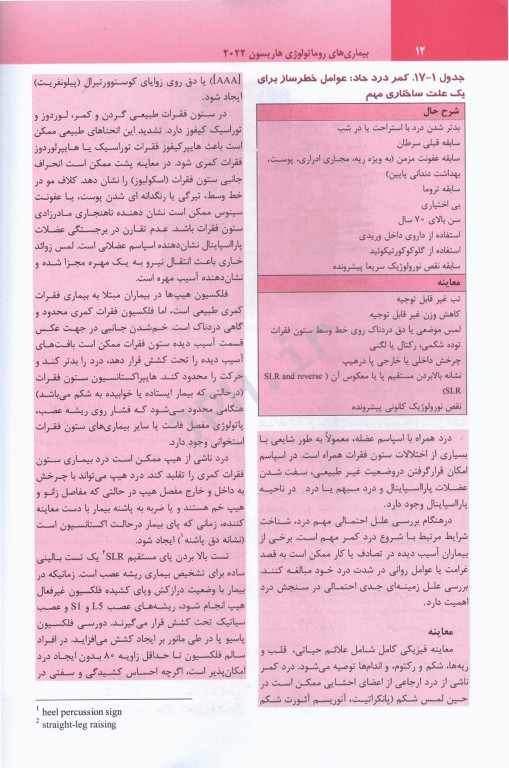 ۱۲
بیماری‌های روماتولوژی هاریسون ۲۰۲۲
جدول ۱-۱۷. کمر درد حاد: عوامل خطرساز برای
یک علت ساختاری مهم
شرح حال
بدتر شدن درد با استراحت یا در شب
سابقه قبلی سرطان
سابقه عفونت مزمن (به ویژه ریه، مجاری ادراری، پوست،
بهداشت دندانی پایین)
سابقه تروما
بی اختیاری
سن بالای ۷۰ سال
استفاده از داروی داخل وریدی
استفاده از گلوکوکورتیکوئید
سابقه نقص نورولوژیک سریعا پیشرونده
معاینه
تب غیر قابل توجیه
کاهش وزن غیر قابل توجیه
لمس موضعی یا دق دردناک روی خط وسط ستون فقرات
توده شکمی، رکتال یا لگنی
چرخش داخلی یا خارجی پا درهیپ
نشانه بالابردن مستقیم پا یا معکوس آن (SLR and reverse
SLR)
نقص نورولوژیک کانونی پیشرونده
درد همراه با اسپاسم عضله، معمولاً به طور شایعی با
بسیاری از اختلالات ستون فقرات همراه است. در اسپاسم
امکان قرارگرفتن دروضعیت غیر طبیعی، سفت شدن
عضلات پارااسپاینال و درد مبهم یا درد در ناحیه
پارااسپاینال وجود دارد.
درهنگام بررسی علل احتمالی مهم درد، شناخت
شرایط مرتبط با شروع درد کمر مهم است. برخی از
بیماران آسیب دیده در تصادف یا کار ممکن است به قصد
غرامت یا عوامل روانی در شدت درد خود مبالغه کنند.
بررسی علل زمینه‌ای جدی احتمالی در سنجش درد
اهمیت دارد.
معاینه
معاینه فیزیکی کامل شامل علائم حیاتی، قلب و
ریه‌ها، شکم و رکتوم، و اندام‌ها توصیه می‌شود. درد کمر
ناشی از درد ارجاعی از اعضای احشایی ممکن است در
حین لمس شکم (پانکراتیت، آنوریسم آئورت شکم
[AAA]) یا دق روی زوایای کوستوورتبرال (پیلونفریت)
ایجاد شود.
در ستون فقرات طبیعی گردن و کمر، لوردوز و
توراسیک کیفوز دارد. تشدید این انحناهای طبیعی ممکن
است باعث هایپرکیفوز فقرات توراسیک یا هایپرلوردوز
فقرات کمری شود. در معاینه پشت ممکن است انحراف
جانبی ستون فقرات (اسکولیوز) را نشان دهد. کلاف مو در
خط وسط، تیرگی یا رنگدانه ای شدن پوست، یا عفونت
سینوس ممکن است نشان دهنده ناهنجاری مادرزادی
ستون فقرات باشد. عدم تقارن در برجستگی عضلات
پارااسپاینال نشان‌دهنده اسپاسم عضلانی است. لمس زوائد
خاری باعث انتقال نیرو به یک مهره مجزا شده و
نشان‌دهنده آسیب مهره است.
فلکسیون هیپ‌ها در بیماران مبتلا به بیماری فقرات
کمری طبیعی است، اما فلکسیون فقرات کمری محدود و
گاهی دردناک است. خم‌شدن جانبی در جهت عکس
قسمت آسیب دیده ستون فقرات ممکن است بافت‌های
آسیب دیده را تحت کشش قرار دهد، درد را بدتر کند و
حرکت را محدود کند. هایپراکستانسیون ستون فقرات
(درحالتی که بیمار ایستاده یا خوابیده به شکم می‌باشد)
هنگامی محدود می‌شود که فشار روی ریشه عصب،
پاتولوژی مفصل فاست یا سایر بیماری‌های ستون فقرات
استخوانی وجود دارد.
درد ناشی از هیپ ممکن است درد بیماری ستون
فقرات کمری را تقلید کند. درد هیپ می‌تواند با چرخش
به داخل و خارج مفصل هیپ در حالتی که مفاصل زانو و
هیپ خم هستند و یا ضربه به پاشنه بیمار با دست معاینه
کننده، زمانی که پای بیمار درحالت اکستانسیون است
(نشانه دق پاشنه¹) ایجاد شود.
تست بالا بردن پای مستقیم SLR² یک تست بالینی
ساده برای تشخیص بیماری ریشه عصب است. زمانیکه در
بیمار با وضعیت درازکش وپای کشیده فلکسیون غیرفعال
هیپ انجام شود، ریشه‌های عصب L5 و S1 و عصب
سیاتیک تحت کشش قرار می‌گیرند. دورسی فلکسیون
پاسیو پا در طی مانور بر ایجاد کشش می‌افزاید. در افراد
سالم فلکسیون تا حداقل زاویه ۸۰ بدون ایجاد درد
امکان‌پذیر است، اگرچه احساس کشیدگی و سفتی در
¹ heel percussion sign
² straight-leg raising